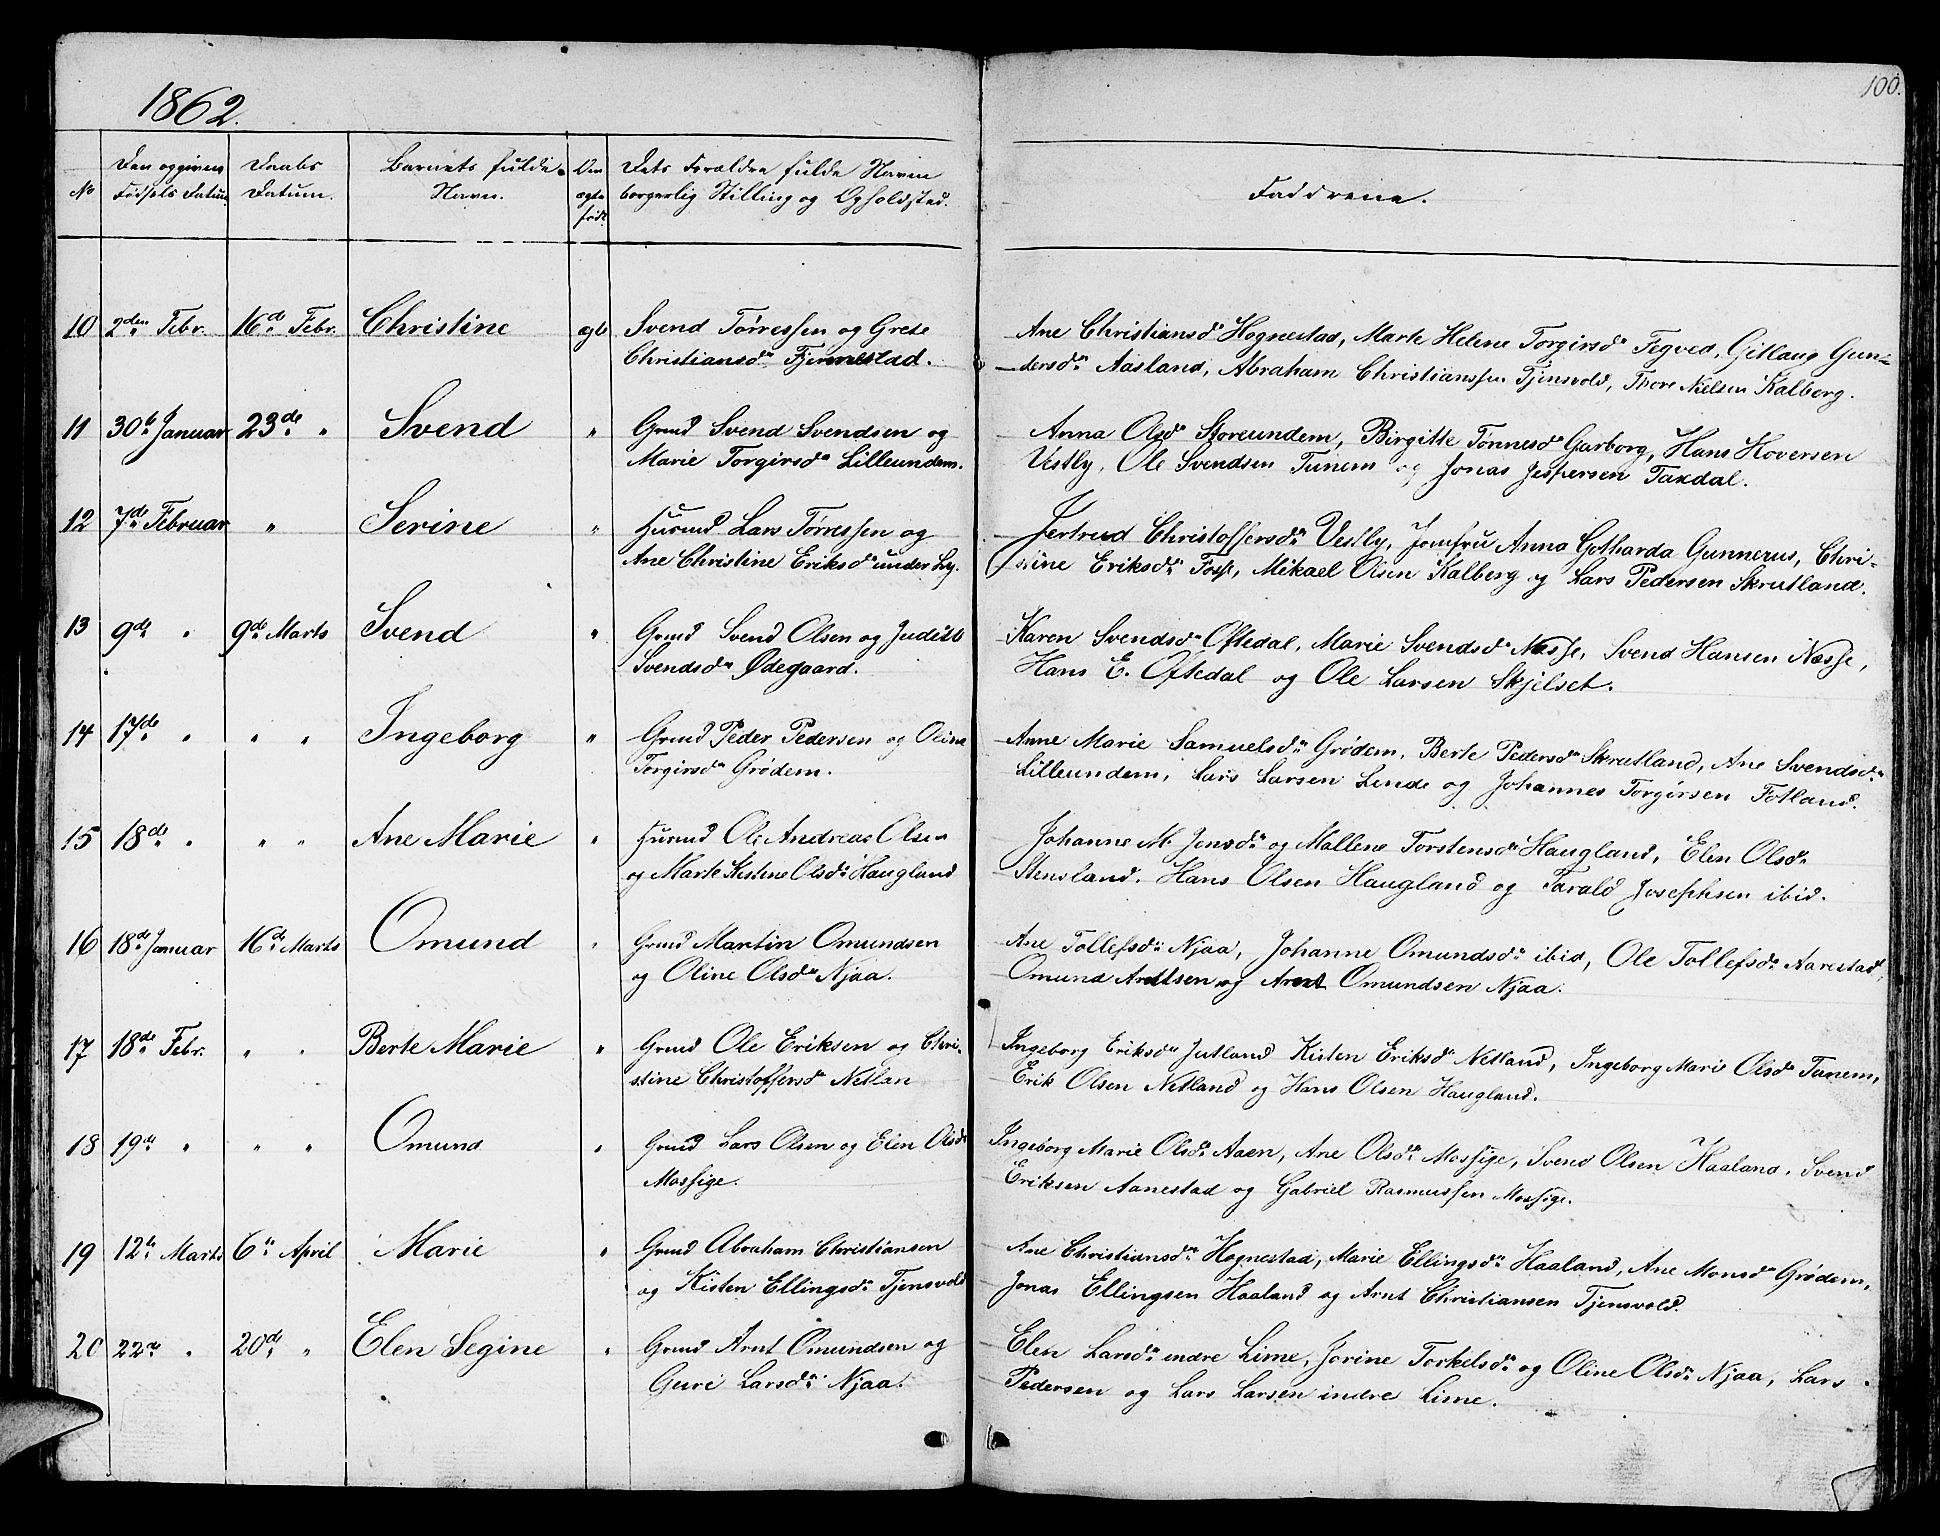 1862.
100.
No
Den opgivne Fødsels Datum
Daabs Datum.
Barnets fulde Navn.
Om ægte født
Dets Forældre fulde Navn borgerlig Stilling og Opholdsted.
Faddrene.
10 2den Febr. 16de Febr. Christine ægte Svend Tørressen og Grete
Christiansd. Tjennestad.
Ane Christiansd. Hognestad, Marte Helene Torgirsd. Tegved, Gitlaug Gun-
dersd. Aasland, Abraham Christianssen Tjensvold, Thore Nielsen Kalberg.
11 30te Januar 23de " Svend " Grmd Svend Svendsen og
Marie Torgirsd. Lilleundem.
Anna Olsd. Storeundem, Birgitte Tønnesd. Garborg, Hans Hoversen
Vestly, Ole Svendsen Tunem og Jonas Jespersen Taxdal.
12 7de Februar " Serine " Husmd Lars Tørressen og
Ane Christine Eriksd. under Ly.
Jertrud Christoffersd. Vestly, Jomfru Anna Gotharda Gunnerus, Chri-
stine Eriksd. Foss, Mikael Olsen Kalberg og Lars Pedersen Skrutland.
13 9de " 9de Marts Svend " Grmd Svend Olsen og Judith
Svendsd. Ødegaard.
Karen Svendsd. Oftedal, Marie Svendsd. Næsse, Svend Hansen Næsse,
Hans E. Oftedal og Ole Larsen Skjelset.
14 17de " " " Ingeborg " Grmd Peder Pedersen og Oline
Torgirsd. Grødem.
Anne Marie Samuelsd. Grødem, Berte Pedersd. Skrutland, Ane Svendsd.
Lilleundem, Lars Larsen Linde og Johannes Torgirsen Fotland.
15 18de " " " Ane Marie " Husmd Ole Andreas Olsen
og Marte Kistine Olsd. Haugland
Johanne M. Jensd. og Mallene Torstensd. Haugland, Elen Olsd.
Stensland. Hans Olsen Haugland og Tarald Josephsen ibid.
16 18de Januar 16de Marts Omund " Grmd Martin Omundsen
og Oline Olsd. Njaa.
Ane Tollefsd. Njaa, Johanne Omundsd. ibid, Ole Tollefsd. Aarestad,
Omund Arntsen og Arnt Omundsen Njaa.
17 18de Febr. " " Berte Marie " Grmd Ole Eriksen og Chri-
stine Christoffersd. Netlan
Ingeborg Eriksd. Jutland Kisten Eriksd. Netland, Ingeborg Marie Olsd. Tunem,
Erik Olsen Netland og Hans Olsen Haugland.
18 19de " " " Omund " Grmd Lars Olsen og Elen Olsd.
Mossige.
Ingeborg Marie Olsd. Aaen, Ane Olsd. Mossige, Svend Olsen Haaland, Svend
Eriksen Aanestad og Gabriel Rasmussen Mossige.
19 12te Marts 6te April Marie " Grmd Abraham Christiansen
og Kisten Ellingsd. Tjensvold
Ane Christiansd. Hognestad, Marie Ellingsd. Haaland, Ane Monsd. Grødem,
Jonas Ellingsen Haaland og Arnt Christiansen Tjensvold.
20 22de " 20de " Elen Segine " Grmd Arnt Omundsen og
Guri Larsd. Njaa.
Elen Larsd. indre Lime, Jorine Torkelsd. og Oline Olsd. Njaa, Lars
Pedersen og Lars Larsen indre Lime.